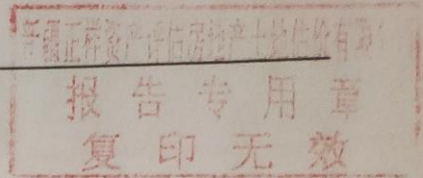 新疆正祥资产评估房地产土地估价有限
报告专用章
复印无效